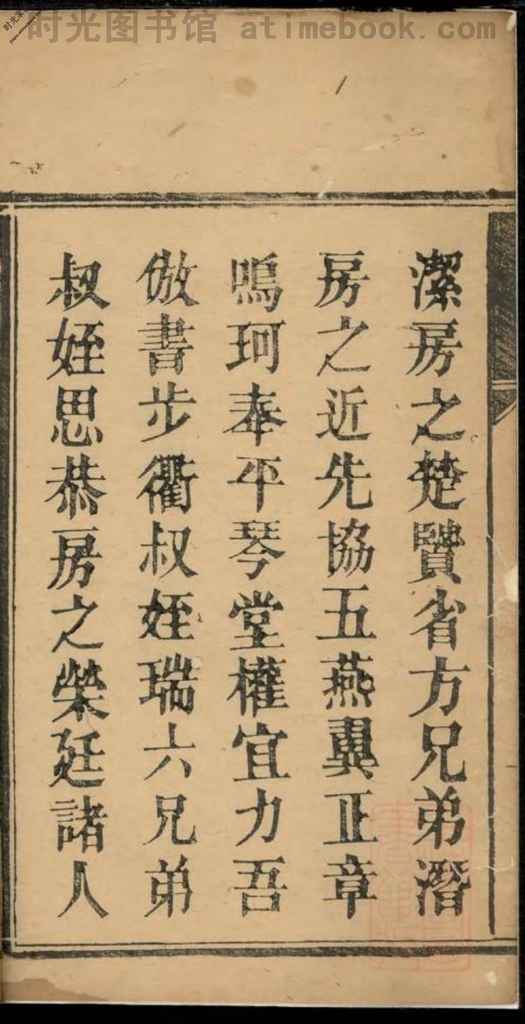 时光图书馆 atimebook.com
潔房之楚賢省方兄弟潛
房之近先協五燕翼正章
鳴珂奉平琴堂權宜力吾
倣書步衢叔姪瑞六兄弟
叔姪思恭房之榮廷諸人